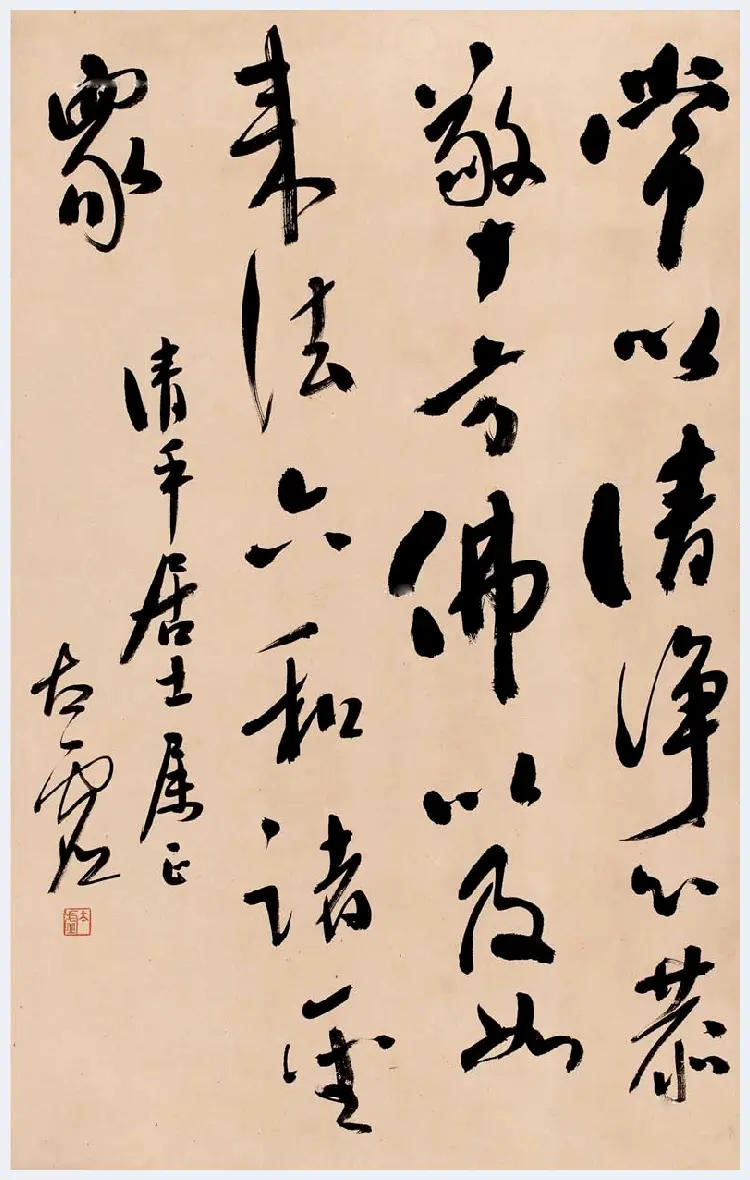 常以清淨心恭
敬十方佛以及如
来法六和諸聖
眾
清平居士属正
太虛
太虛